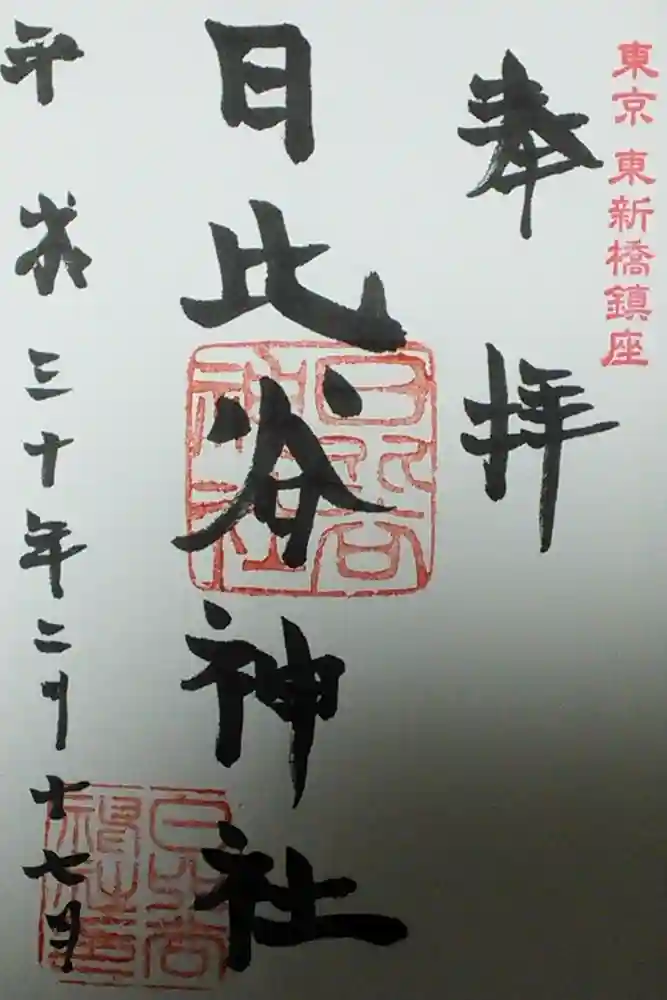 東京 東新橋鎮座
奉拝
日比谷神社
平成三十年二月十七日
日比谷神社